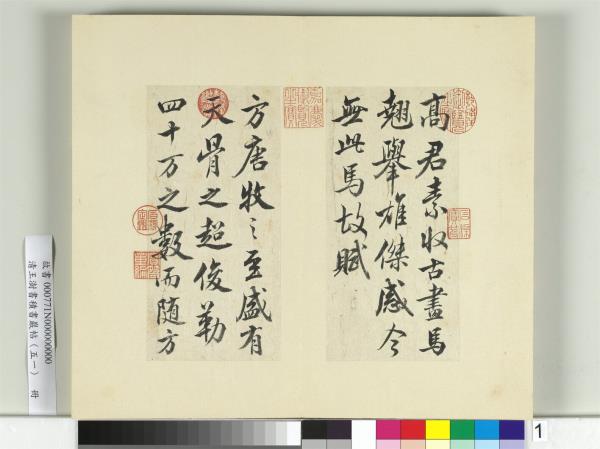 高君素收古畫馬
翹舉雄傑感今
無此馬故賦
方唐牧之至盛有
天骨之超俊勒
四十萬之數而隨方
故書 000771N000000000
清王澍書積書巖帖（五一） 冊
1